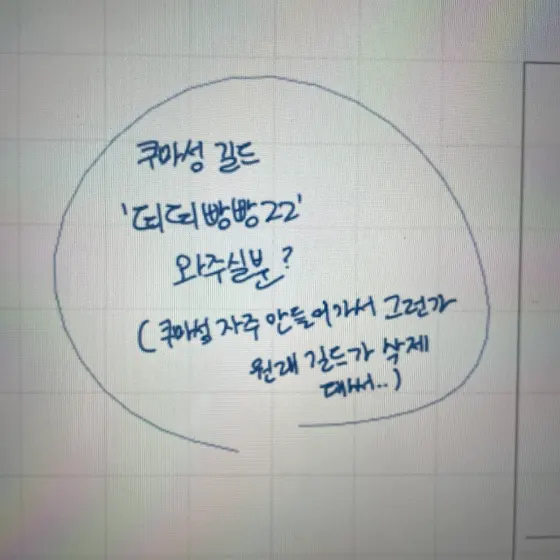 쿠마성 길드
'띠띠빵빵22'
와주실분?
(쿠마성 자주 안들어가서 그런가
원래 길드가 삭제
대써..)